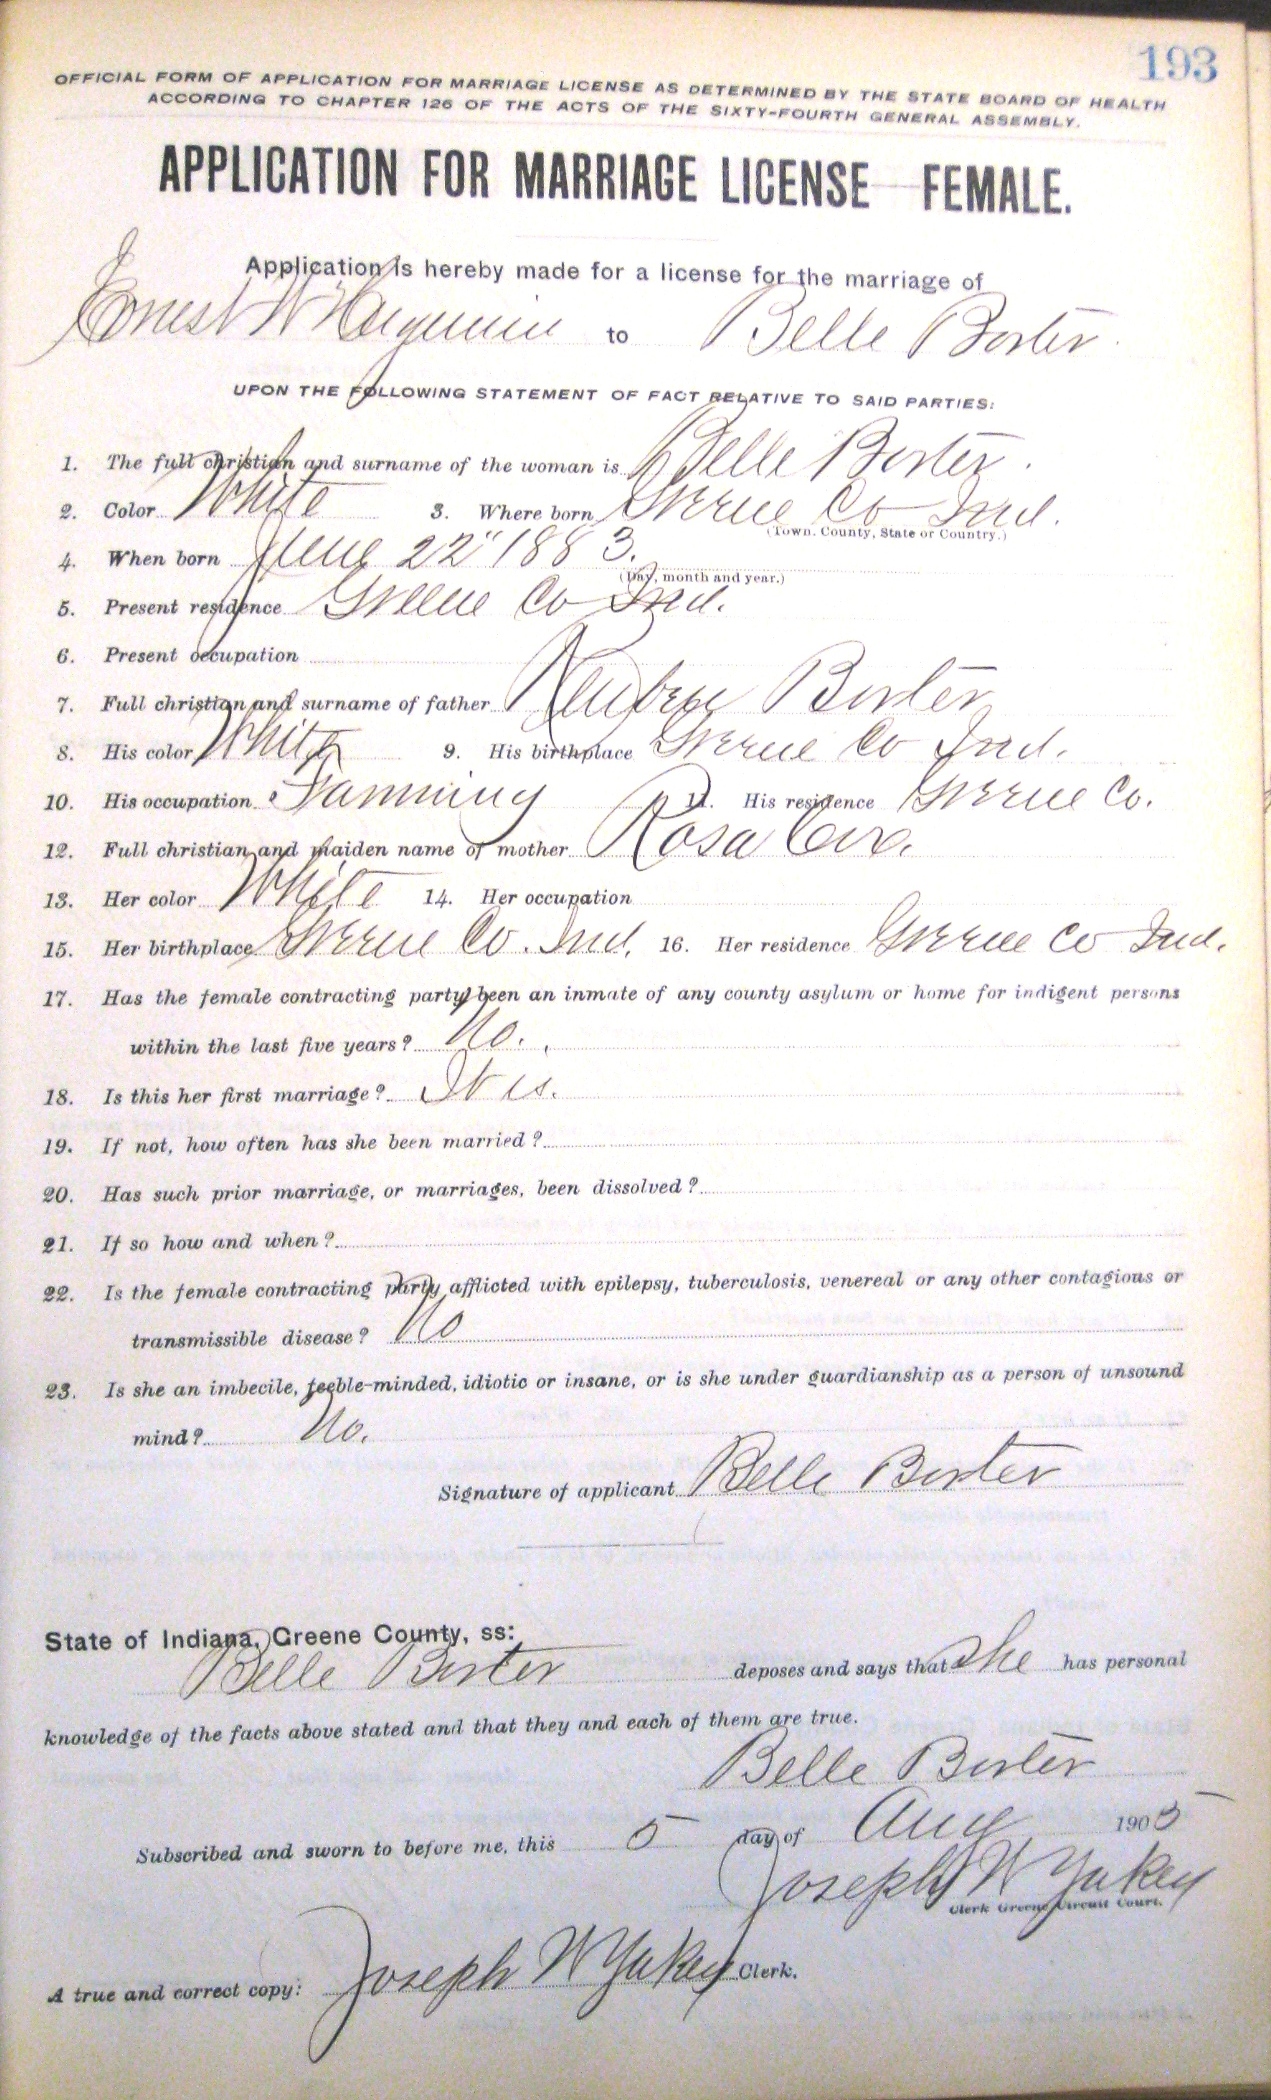 193
OFFICIAL FORM OF APPLICATION FOR MARRIAGE LICENSE AS DETERMINED BY THE STATE BOARD OF HEALTH
ACCORDING TO CHAPTER 126 OF THE ACTS OF THE SIXTY-FOURTH GENERAL ASSEMBLY.
APPLICATION FOR MARRIAGE LICENSE FEMALE.
Application is hereby made for a license for the marriage of
Ernest W to Belle Borter
UPON THE FOLLOWING STATEMENT OF FACT RELATIVE TO SAID PARTIES:
1. The full christian and surname of the woman is Belle Borter.
2. Color White 3. Where born Greene Co Ind.
(Town. County, State or Country.)
4. When born June 22" 1883.
(Day, month and year.)
5. Present residence Greene Co Ind.
6. Present occupation
7. Full christian and surname of father Reuben Borter
8. His color White 9. His birthplace Greene Co Ind.
10. His occupation Farming 11. His residence Greene Co.
12. Full christian and maiden name of mother Rosa
13. Her color White 14. Her occupation
15. Her birthplace Greene Co. Ind. 16. Her residence Greene Co Ind.
17. Has the female contracting party been an inmate of any county asylum or home for indigent persons
within the last five years? No.
18. Is this her first marriage? It is.
19. If not, how often has she been married?
20. Has such prior marriage, or marriages, been dissolved?
21. If so how and when?
22. Is the female contracting party afflicted with epilepsy, tuberculosis, venereal or any other contagious or
transmissible disease? No
23. Is she an imbecile, feeble-minded, idiotic or insane, or is she under guardianship as a person of unsound
mind? No.
Signature of applicant Belle Borter
State of Indiana, Greene County, ss:
Belle Borter deposes and says that she has personal
knowledge of the facts above stated and that they and each of them are true.
Belle Borter
Subscribed and sworn to before me, this 5 day of Aug 1905
Joseph W Yakey
Clerk Greene Circuit Court.
A true and correct copy: Joseph W Yakey Clerk.